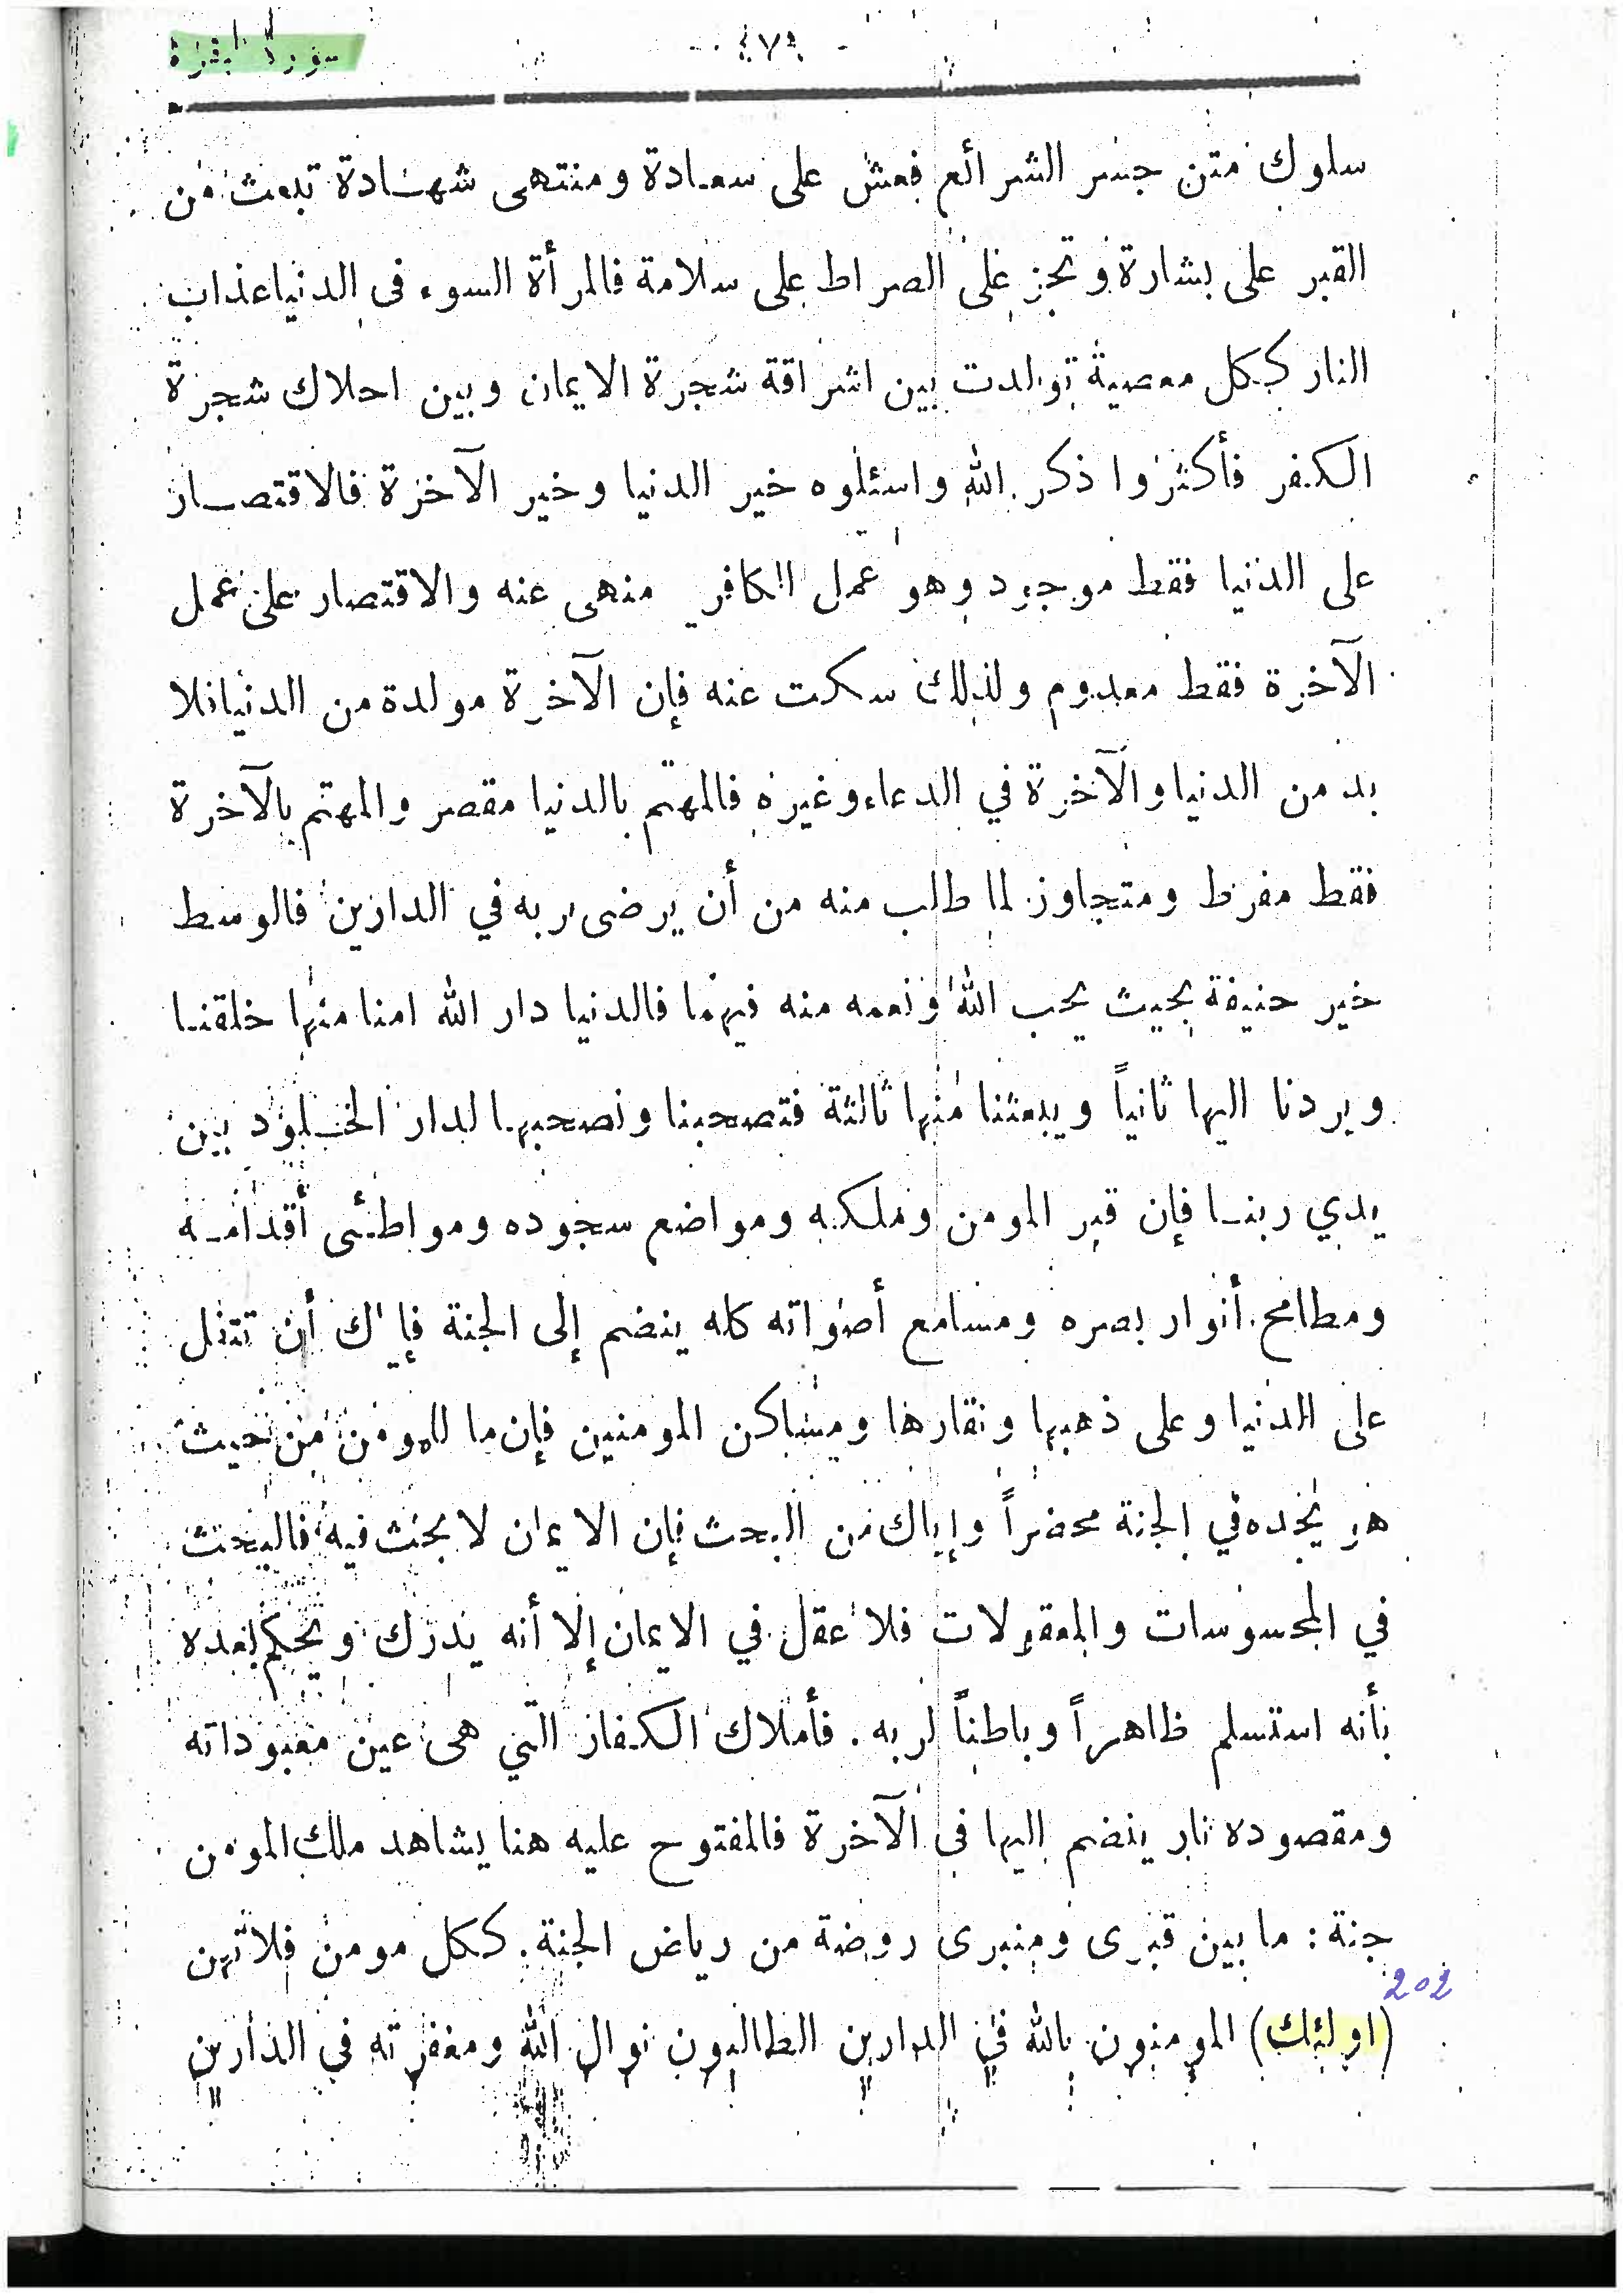 سورة البقرة
- ٤٧٩ -
سلوك متن جسر الشرائع فعش على سعادة ومنتهى شهادة تبعث من
القبر على بشارة وتجز على الصراط على سلامة فالمرأة السوء فى الدنيا عذاب
النار ككل معصية تولدت بين اشراقة شجرة الايمان وبين احلاك شجرة
الكفر فأكثروا ذكر الله واسئلوه خير الدنيا وخير الآخرة فالاقتصار
على الدنيا فقط موجود وهو عمل الكافر منهى عنه والاقتصار على عمل
الآخرة فقط معدوم ولذلك سكت عنه فإن الآخرة مولدة من الدنيا فلا
بد من الدنيا والآخرة في الدعاء وغيره فالمهتم بالدنيا مقصر والمهتم بالآخرة
فقط مفرط ومتجاوز لما طلب منه من أن يرضى ربه في الدارين فالوسط
خير حنيفة بحيث يحب الله ونعمه منه فيهما فالدنيا دار الله امنا منها خلقنا
ويردنا اليها ثانياً ويبعثنا منها ثالثة فتصحبنا ونصحبها لدار الخلود بين
يدي ربنا فإن قبر المومن وملكه ومواضع سجوده ومواطئى أقدامه
ومطامح أنوار بصره ومسامع أصواته كله ينضم إلى الجنة فإياك أن تتفل
على الدنيا وعلى ذهبها ونقارها ومساكن المومنين فإن ما للمومن من حيث
هو يجده في الجنة محضراً وإياك من البحث فإن الايمان لا بحث فيه فالبحث
في المحسوسات والمعقولات فلا عقل في الايمان إلا أنه يدرك ويحكم لعبده
بأنه استسلم ظاهراً وباطناً لربه . فأملاك الكفار التي هى عين معبوداته
ومقصوده نار ينضم اليها فى الآخرة فالمفتوح عليه هنا يشاهد ملك المومن
جنة : ما بين قبرى ومنبرى روضة من رياض الجنة . ككل مومن فلا تهن
202
(اولئك) المومنون بالله في الدارين الطالبون نوال الله ومغفرته في الدارين